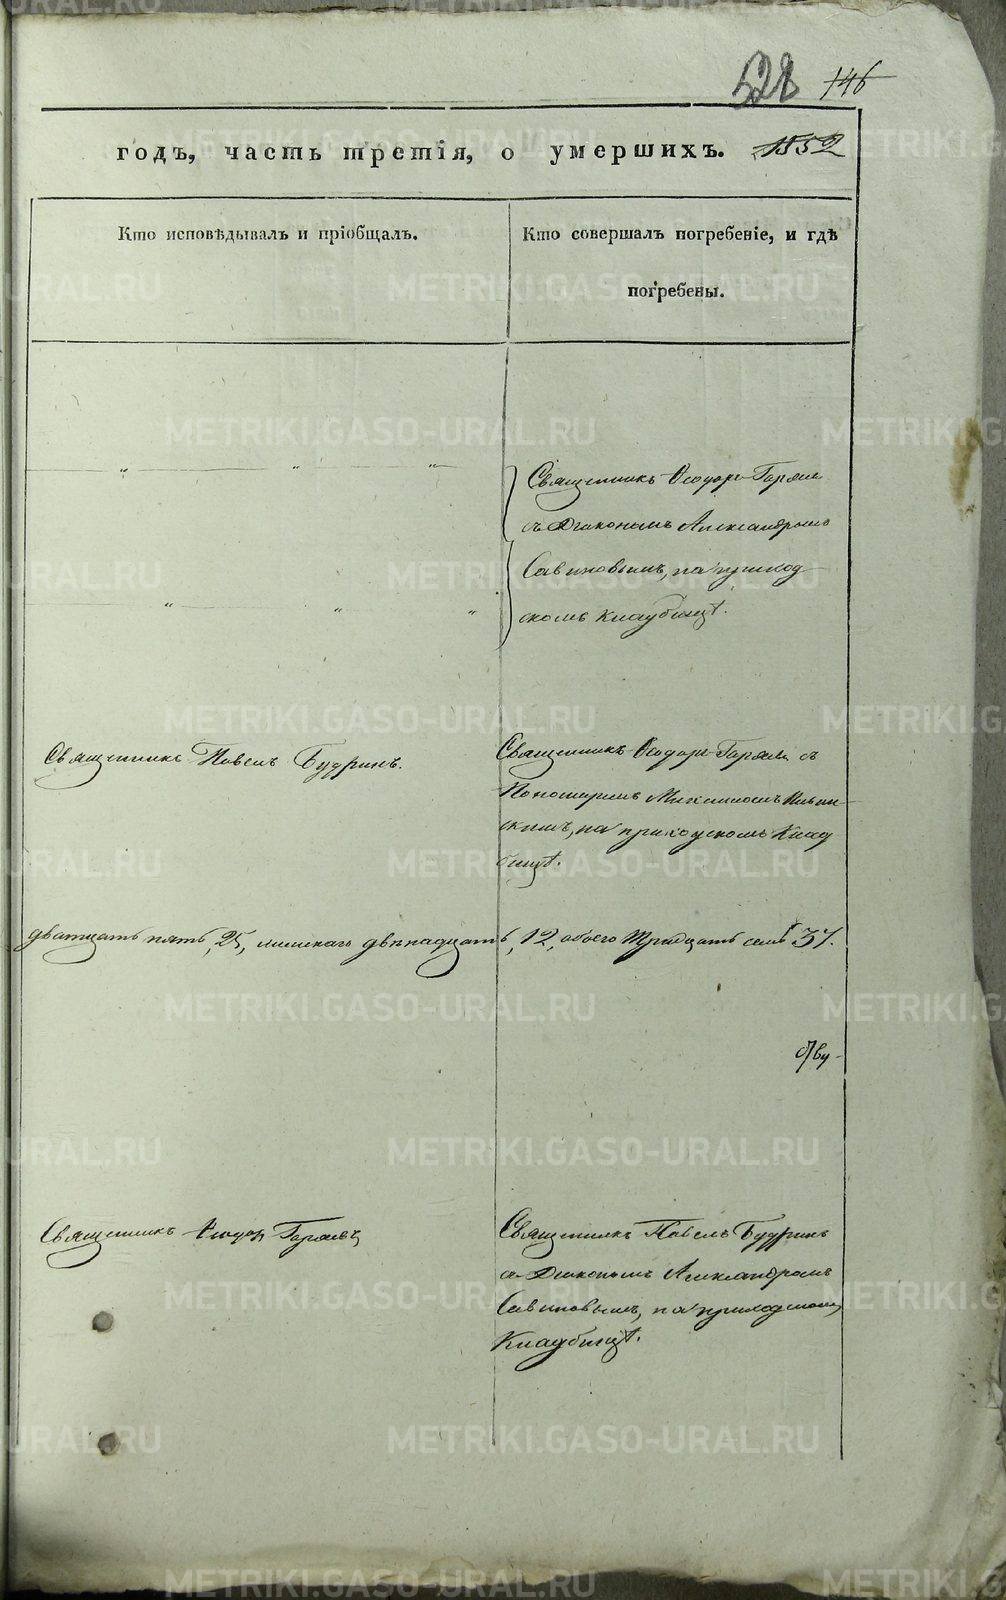 528 146
годъ, часть третія, о умершихъ. 1552
Кто исповѣдывалъ и пріобщалъ.
Кто совершалъ погребеніе, и гдѣ
погребены.
Священникъ Ѳеодоръ
съ Діакономъ Александромъ
Савиновымъ, на приход
скомъ кладбищѣ.
Священникъ Павелъ Будринъ.
Священникъ Ѳеодоръ съ
Пономаремъ
скимъ, на приходскомъ Клад
бищѣ.
дватцать пять, 25, женскаго двенадцать, 12, обоего тридцать семь 37.
Священникъ Ѳеодоръ
Священникъ Павелъ Будринъ
съ Діакономъ Александромъ
Савиновымъ, на приходскомъ
Кладбищѣ.
METRIKI.GASO-URAL.RU